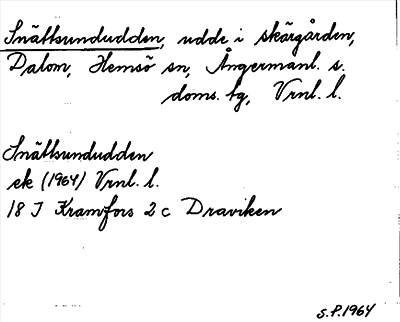 Snättsundudden, udde i skärgården,
Dalom, Hemsö sn, Ångermanl. s.
doms. tg, Vrnl. l.
Snättsundudden
ek (1964) Vrnl. l.
18 J Kramfors 2 c Draviken
S.P. 1964